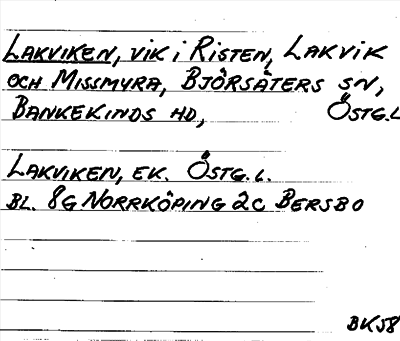 LAKVIKEN, VIK i RISTEN, LAKVIK
OCH MISSMYRA, BJÖRSÄTERS SN,
BANKEKINDS HD, ÖSTG.L
LAKVIKEN, EK. ÖSTG.L.
BL. 8G NORRKÖPING 2C BERSBO
BK58